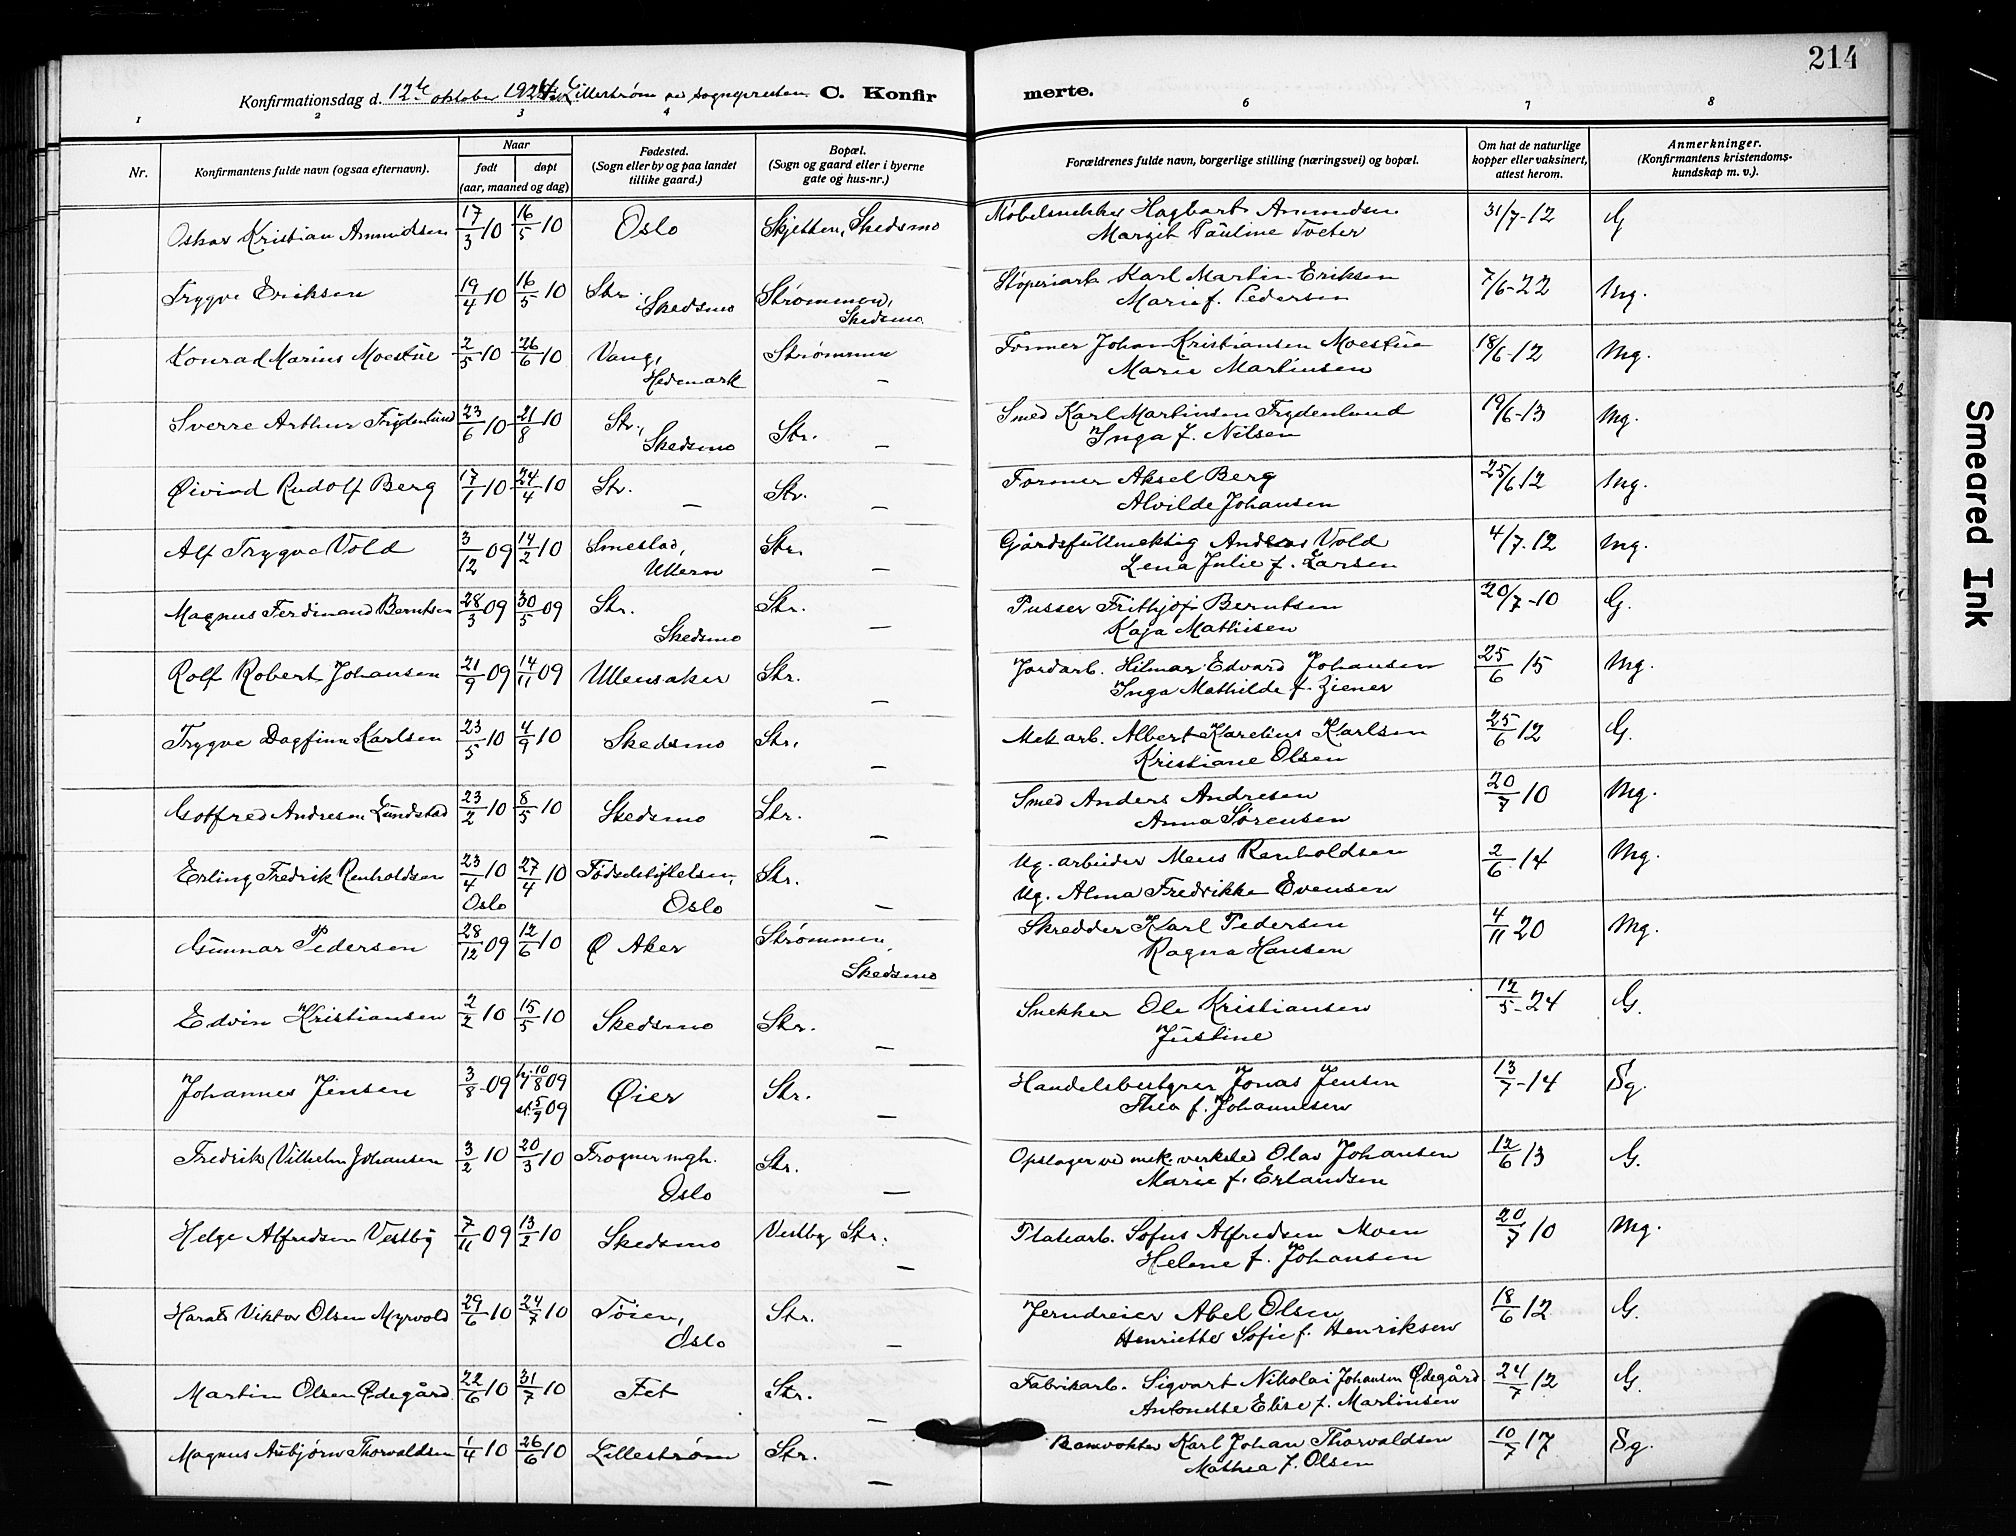 214
Konfirmationsdag d. 12te oktober 1924 Lillestrøm ved sognepresten C. Konfir
merte.
1 2 3 4 5 6 7 8
Nr.
Konfirmantens fulde navn (ogsaa efternavn).
Naar
født døpt
(aar, maaned og dag)
Fødested.
(Sogn eller by og paa landet
tillike gaard.)
Bopæl.
(Sogn og gaard eller i byerne
gate og hus-nr.)
Forældrenes fulde navn, borgerlige stilling (næringsvei) og bopæl.
Om hat de naturlige
kopper eller vaksinert,
attest herom.
Anmerkninger.
(Konfirmantens kristendoms-
kundskap m. v.).
Oskar Kristian Amundsen 17/3 10 16/5 10 Oslo Skjetten, Skedsmo Møbelsnekker Hagbart Amundsen 31/7-12 G
Margit Pauline Tveter
Trygve Eriksen 19/4 10 16/5 10 Str. Skedsmo Strømmen, Skedsmo Støperiarb. Karl Martin Eriksen 7/6-22 Mg.
Marie f. Pedersen
Konrad Marius Moestue 2/5 10 26/6 10 Vang, Hedemark Strømmen — Former Johan Kristiansen Moestue 18/6-12 Mg.
Marie Martinsen
Sverre Arthur Frydenlund 23/6 10 21/8 10 Str., Skedsmo Str. — Smed Karl Martinsen Frydenlund 19/6-13 Mg.
Inga f. Nilsen
Øivind Rudolf Berg 17/1 10 24/4 10 Str. — Str. — Former Aksel Berg 25/6 12 Mg.
Alvilde Johansen
Alf Trygve Vold 3/12 09 14/2 10 Smestad, Ullern Str. — Gårdsfullmektig Andreas Vold 4/7-12 Mg.
Lena Julie f. Larsen
Magnus Ferdinand Berntsen 28/3 09 30/5 09 Str. Skedsmo Str. — Pusser Frithjof Berntsen 20/7-10 G.
Kaja Mathisen
Rolf Robert Johansen 21/9 09 14/11 09 Ullensaker Str. — Jordarb. Hilmar Edvard Johansen 25/6 15 Mg.
Inga Mathilde f. Ziener
Trygve Dagfinn Karlsen 23/5 10 4/9 10 Skedsmo Str. — Mek arb. Albert Karelius Karlsen 25/6 12 G.
Kristiane Olsen
Gotfred Andresen Lundstad 23/2 10 8/5 10 Skedsmo Str. — Smed Anders Andresen 20/7 10 Mg.
Anna Sørensen
Erling Fredrik Renholdsen 23/4 10 Oslo 27/4 10 Fødselsstiftelsen, Oslo Str. — Ug. arbeider Mens Renholdsen 2/6 14 Mg.
Ug. Alma Fredrikke Evensen
Gunnar Pedersen 28/12 09 12/6 10 Ø Aker Strømmen, Skedsmo Skredder Karl Pedersen 4/11 20 Mg.
Ragna Hansen
Edvin Kristiansen 2/2 10 15/5 10 Skedsmo Str. — Snekker Ole Kristiansen 12/5-24 G.
Justine
Johannes Jensen 3/8 09 hj. 10/8 09 st. 5/9 09 Øier Str. — Handelsbestyrer Jonas Jensen 13/7-14 Sg.
Thea f. Johannesen
Fredrik Vilhelm Johansen 3/2 10 20/3 10 Frogner mgh. Oslo Str. — Opslager ved mek. verksted Olav Johansen 12/6 13 G.
Marie f. Erlandsen
Helge Alfredsen Vestby 7/11 09 13/2 10 Skedsmo Vestby Str. — Platearb. Sofus Alfredsen Moen 20/7 10 Mg.
Helene f. Johansen
Harald Viktor Olsen Myrvold 29/6 10 24/7 10 Tøien, Oslo Str. — Jerndreier Abel Olsen 18/6 12 G.
Henriette Sofie f. Henriksen
Martin Olsen Ødegård 22/6 10 31/7 10 Fet Str. — Fabrikarb. Sigvart Nikolai Johansen Ødegård 24/7 12 G.
Antonette Elise f. Martinsen
Magnus Asbjørn Thorvaldsen 1/4 10 26/6 10 Lillestrøm Str. — Bomvokter Karl Johan Thorvaldsen 10/7 17 Sg.
Mathea f. Olsen
Smeared Ink